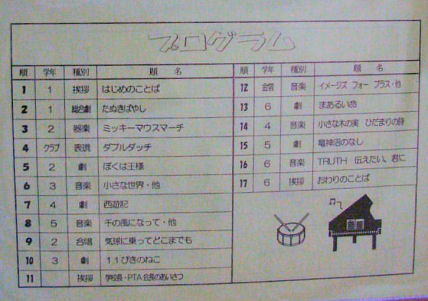 プログラム
順 学年 種別 題 名
1 1 挨拶 はじめのことば
2 1 総合劇 たぬきばやし
3 2 器楽 ミッキーマウスマーチ
4 クラブ 表現 ダブルダッチ
5 2 劇 ぼくは王様
6 3 音楽 小さな世界・他
7 4 劇 西遊記
8 5 音楽 千の風になって・他
9 2 合唱 気球に乗ってどこまでも
10 3 劇 11ぴきのねこ
11 挨拶 学校長・PTA会長のあいさつ
順 学年 種別 題 名
12 音楽 イメージズ フォー ブラス・他
13 6 劇 まあるい
14 4 音楽 小さな木の実 ひだまりの詩
15 5 劇 竜神沼のなし
16 6 音楽 TRUTH 伝えたい、君に
17 6 挨拶 おわりのことば